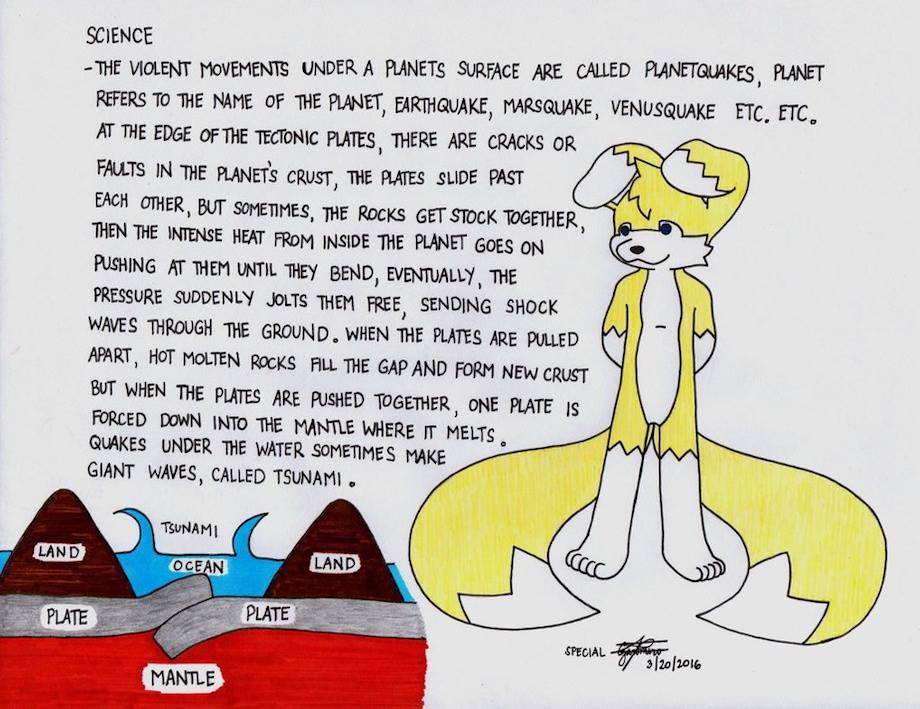 SCIENCE
-THE VIOLENT MOVEMENTS UNDER A PLANETS SURFACE ARE CALLED PLANETQUAKES, PLANET
REFERS TO THE NAME OF THE PLANET, EARTHQUAKE, MARSQUAKE, VENUSQUAKE ETC. ETC.
AT THE EDGE OF THE TECTONIC PLATES, THERE ARE CRACKS OR
FAULTS IN THE PLANET'S CRUST, THE PLATES SLIDE PAST
EACH OTHER, BUT SOMETIMES, THE ROCKS GET STOCK TOGETHER,
THEN THE INTENSE HEAT FROM INSIDE THE PLANET GOES ON
PUSHING AT THEM UNTIL THEY BEND, EVENTUALLY, THE
PRESSURE SUDDENLY JOLTS THEM FREE, SENDING SHOCK
WAVES THROUGH THE GROUND. WHEN THE PLATES ARE PULLED
APART, HOT MOLTEN ROCKS FILL THE GAP AND FORM NEW CRUST
BUT WHEN THE PLATES ARE PUSHED TOGETHER, ONE PLATE IS
FORCED DOWN INTO THE MANTLE WHERE IT MELTS.
QUAKES UNDER THE WATER SOMETIMES MAKE
GIANT WAVES, CALLED TSUNAMI.
TSUNAMI
LAND
OCEAN
LAND
PLATE
PLATE
MANTLE
SPECIAL
3/20/2016